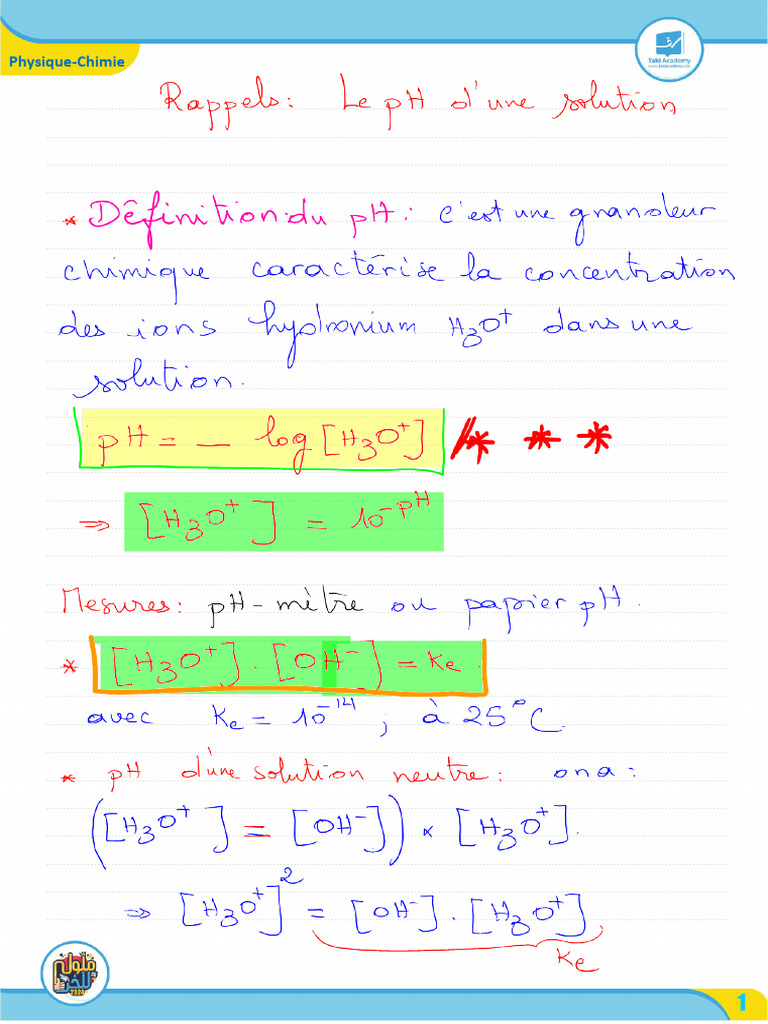 Physique-Chimie
Taki Academy
www.takiacademy.com
Rappels: Le pH d'une solution
* Définition du pH: c'est une grandeur
chimique caractérise la concentration
des ions hydronium H₃O⁺ dans une
solution.
pH = - log [H₃O⁺] * * *
⇒ [H₃O⁺] = 10⁻ᵖᴴ
Mesures: pH-mètre ou papier pH.
* [H₃O⁺] . [OH⁻] = Ke.
avec Ke = 10⁻¹⁴, à 25°C.
* pH d'une solution neutre: on a:
([H₃O⁺] = [OH⁻]) × [H₃O⁺].
⇒ [H₃O⁺]² = [OH⁻] . [H₃O⁺]
Ke
2024
1